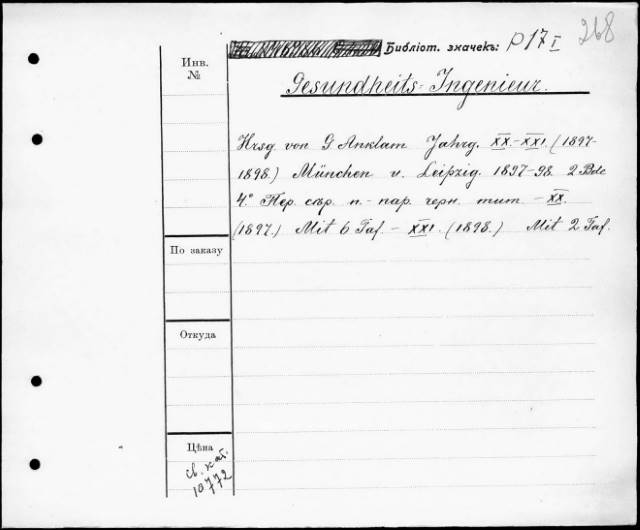 268
Библіот. значекъ: P 17 I
Инв.
№
Gesundheits-Ingenieur.
Hrsg. von G Anklam Jahrg. XX.-XXI. (1897-
1898.) München u. Leipzig. 1897-98. 2 Bde
4° Пер. сѣр. п.-пар. черн. тит - XX.
(1897.) Mit 6 Taf. - XXI. (1898.) Mit 2 Taf.
По заказу
Откуда
Цѣна
св. кат.
10772